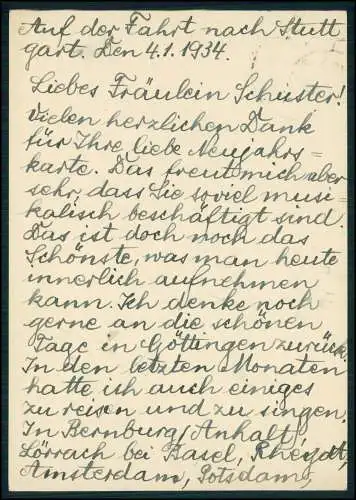 Auf der Fahrt nach Stutt
gart. Den 4.1.1934.
Liebes Fräulein Schuster!
Vielen herzlichen Dank
für Ihre liebe Neujahrs=
karte. Das freut mich aber
sehr, dass Sie so viel musi=
kalisch beschäftigt sind.
Das ist doch noch das
Schönste, was man heute
innerlich aufnehmen
kann. Ich denke noch
gerne an die schönen
Tage in Göttingen zurück.
In den letzten Monaten
hatte ich auch einiges
zu reisen und zu singen.
In Bernburg/Anhalt,
Lörrach bei Basel, Rheydt,
Amsterdam, Potsdam,